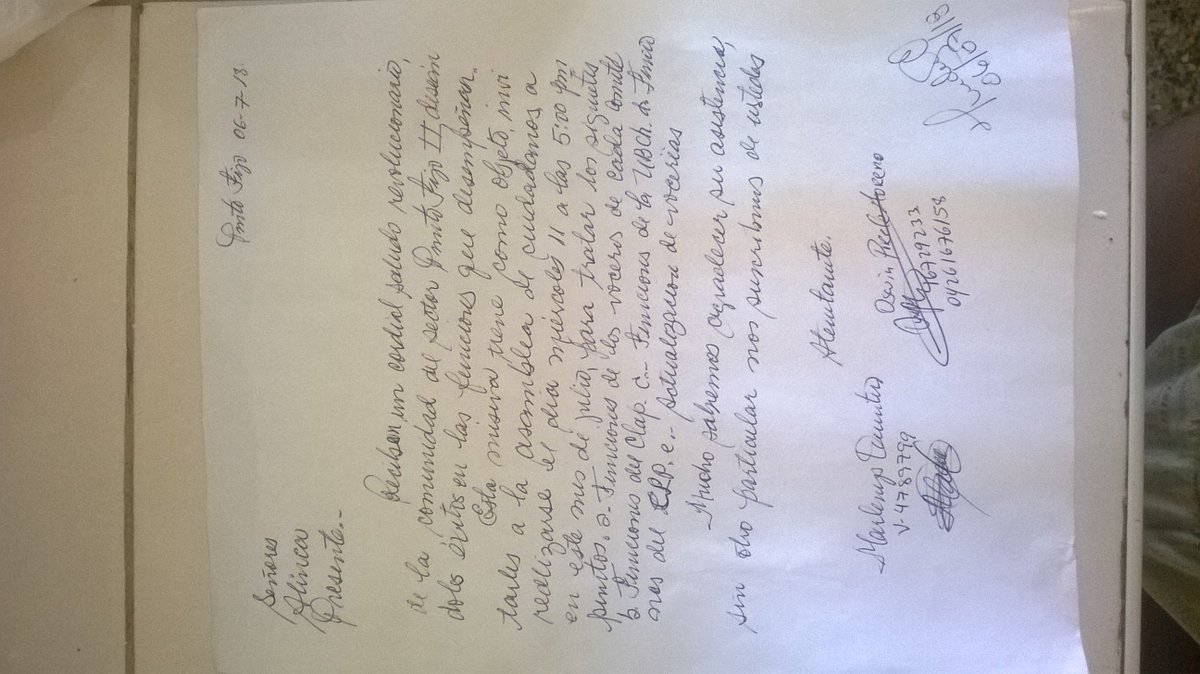 Punto Fijo 06-7-18
Señores
Alinca
Presente.-
Reciban un cordial saludo revolucionario,
de la comunidad del sector Punto Fijo II deseán
doles éxitos en las funciones que desempeñan.
Esta misiva tiene como objeto, invi
tarles a la asamblea de ciudadanos, a
realizarse el día miércoles 11 a las 5:00 pm
en este mes de julio, para tratar los siguientes
puntos. a- Funciones de los voceros de cada comité
b Funciones del Clap. c.- Funciones de la UBCh. d. Funcio
nes del CLP. e.- Actualización de vocerías
Mucho sabremos agradecer su asistencia,
sin otro particular nos suscribimos de ustedes
Atentamente.
Marlenys
V. 4789799
Moreno
16729233
04261676158